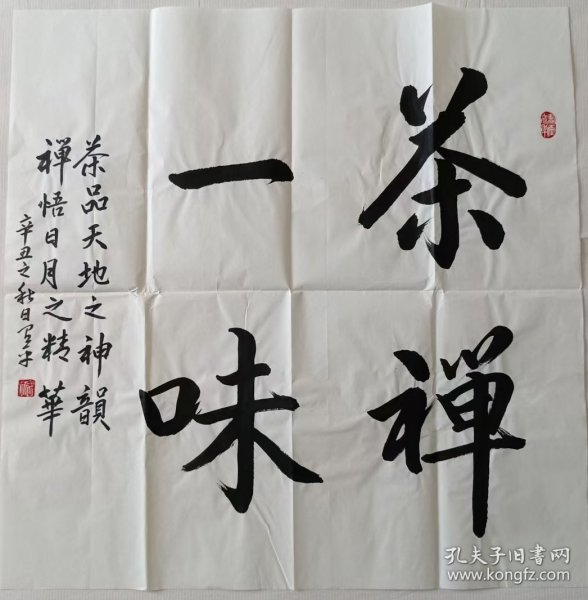 茶禪
一味
茶品天地之神韻
禅悟日月之精華
辛丑之秋日
孔夫子旧书网
www.kongfz.com